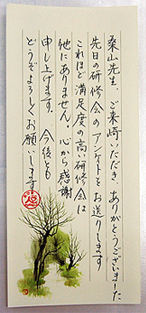 桑山先生、ご来崎いただき、ありがとうございました
先日の研修会のアンケートをお送りします
これほど満足度の高い研修会は
他にありません。心から感謝
申し上げます。今後とも
どうぞよろしくお願いします